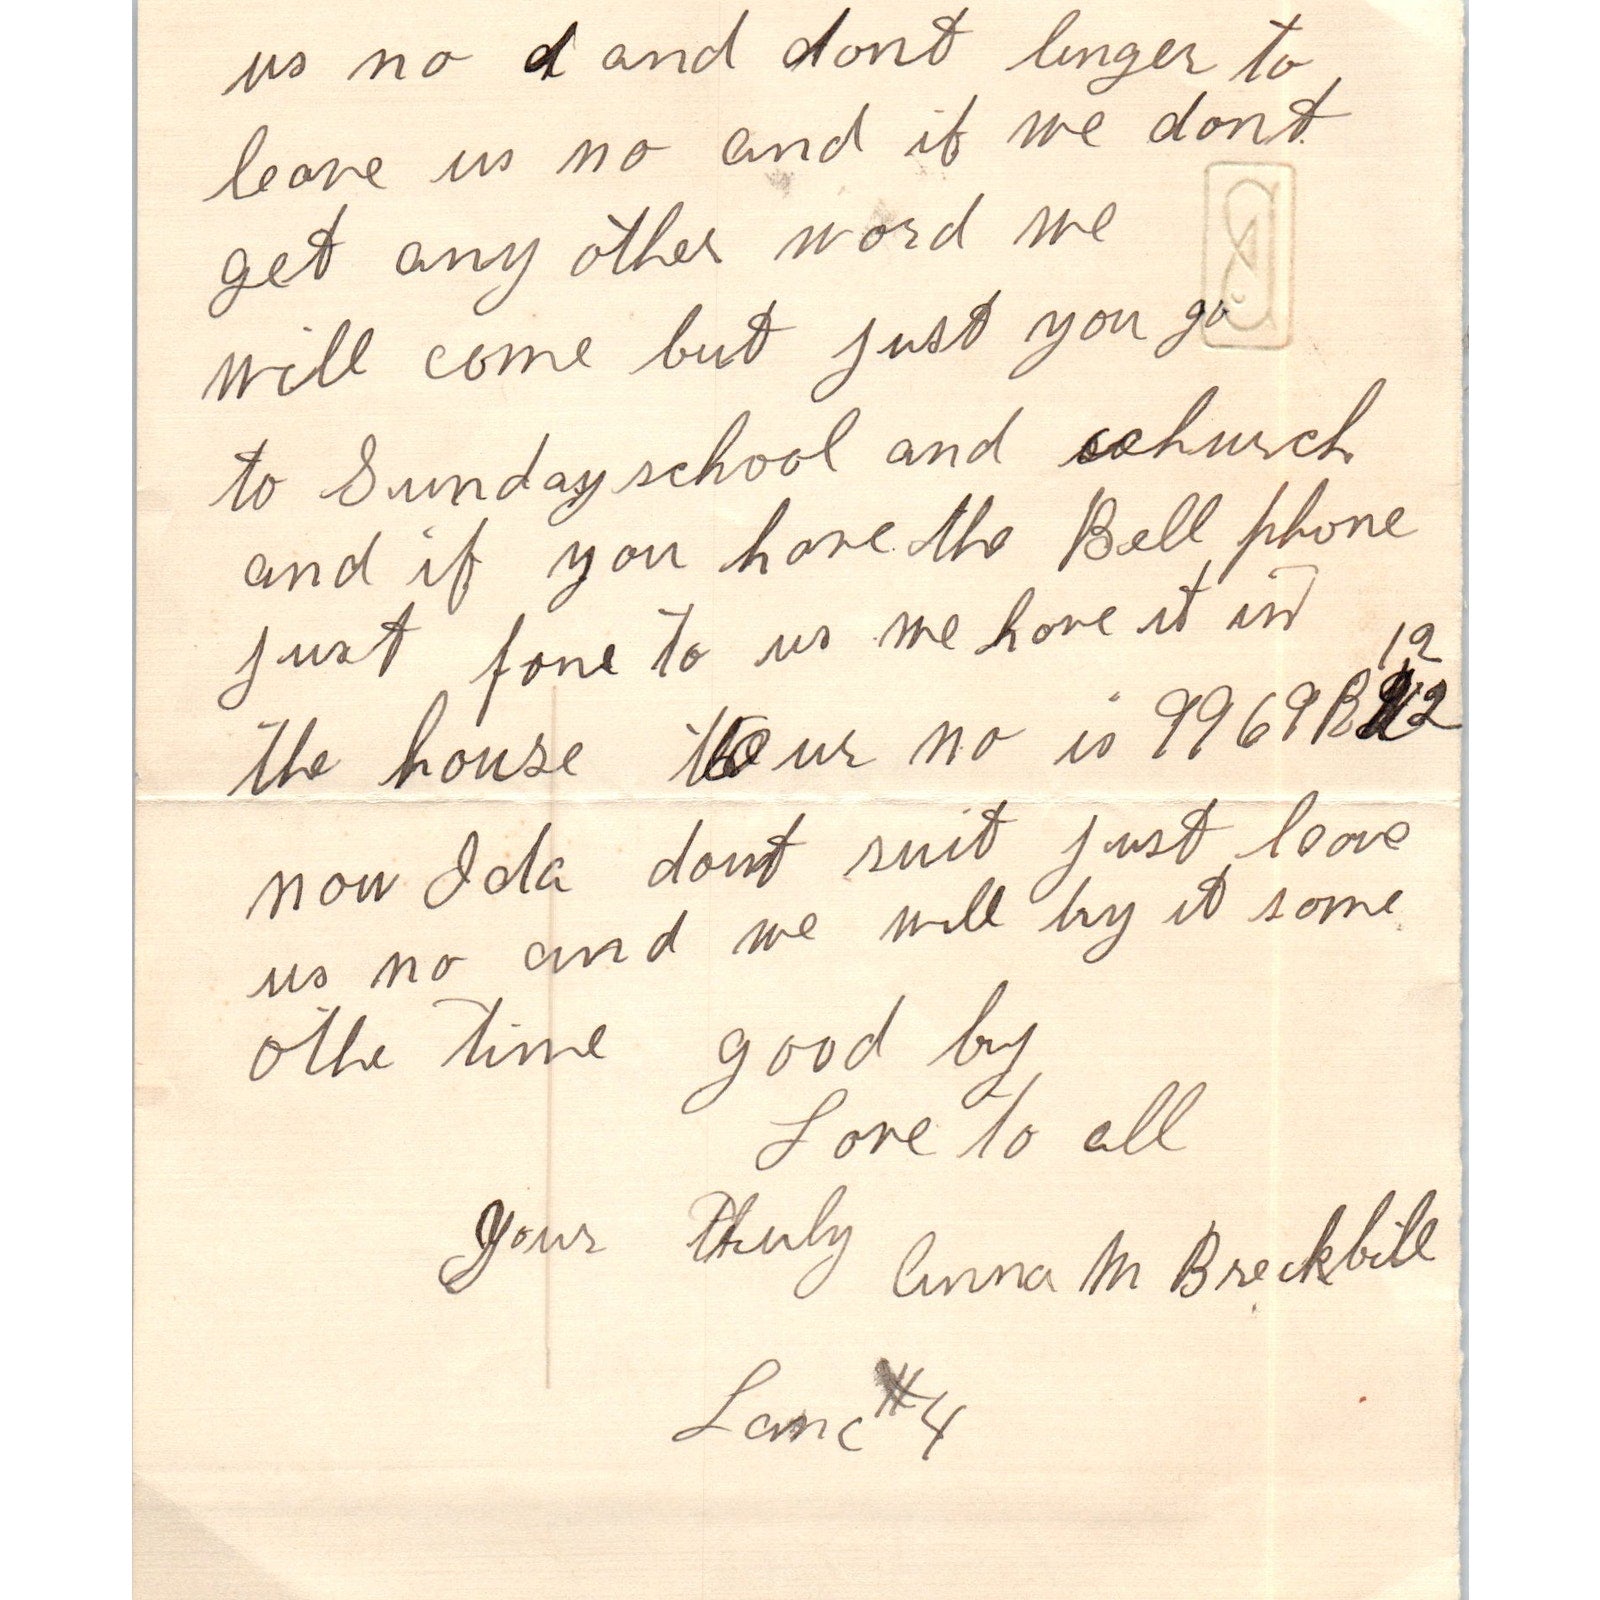 us no d and dont linger to
leave us no and if we dont
get any other word we
will come but just you go
to Sunday school and church
and if you have the Bell phone
just fone to us we have it in
the house our no is 9969R 12
now Ida dont suit just leave
us no and we will try it some
othe time good by
Love to all
Your Thruly Anna M Breckbill
Lanc #4